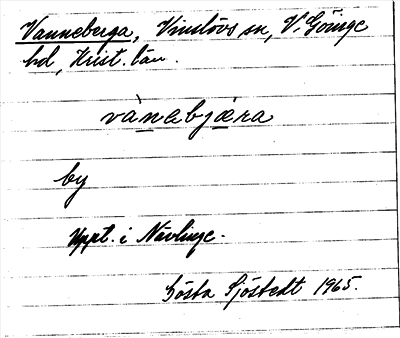 Vanneberga, Vinslövs sn, V. Göinge
hd, Krist. län.
vànabjæra
by
Uppt. i Nävlinge.
Gösta Sjöstedt 1965.